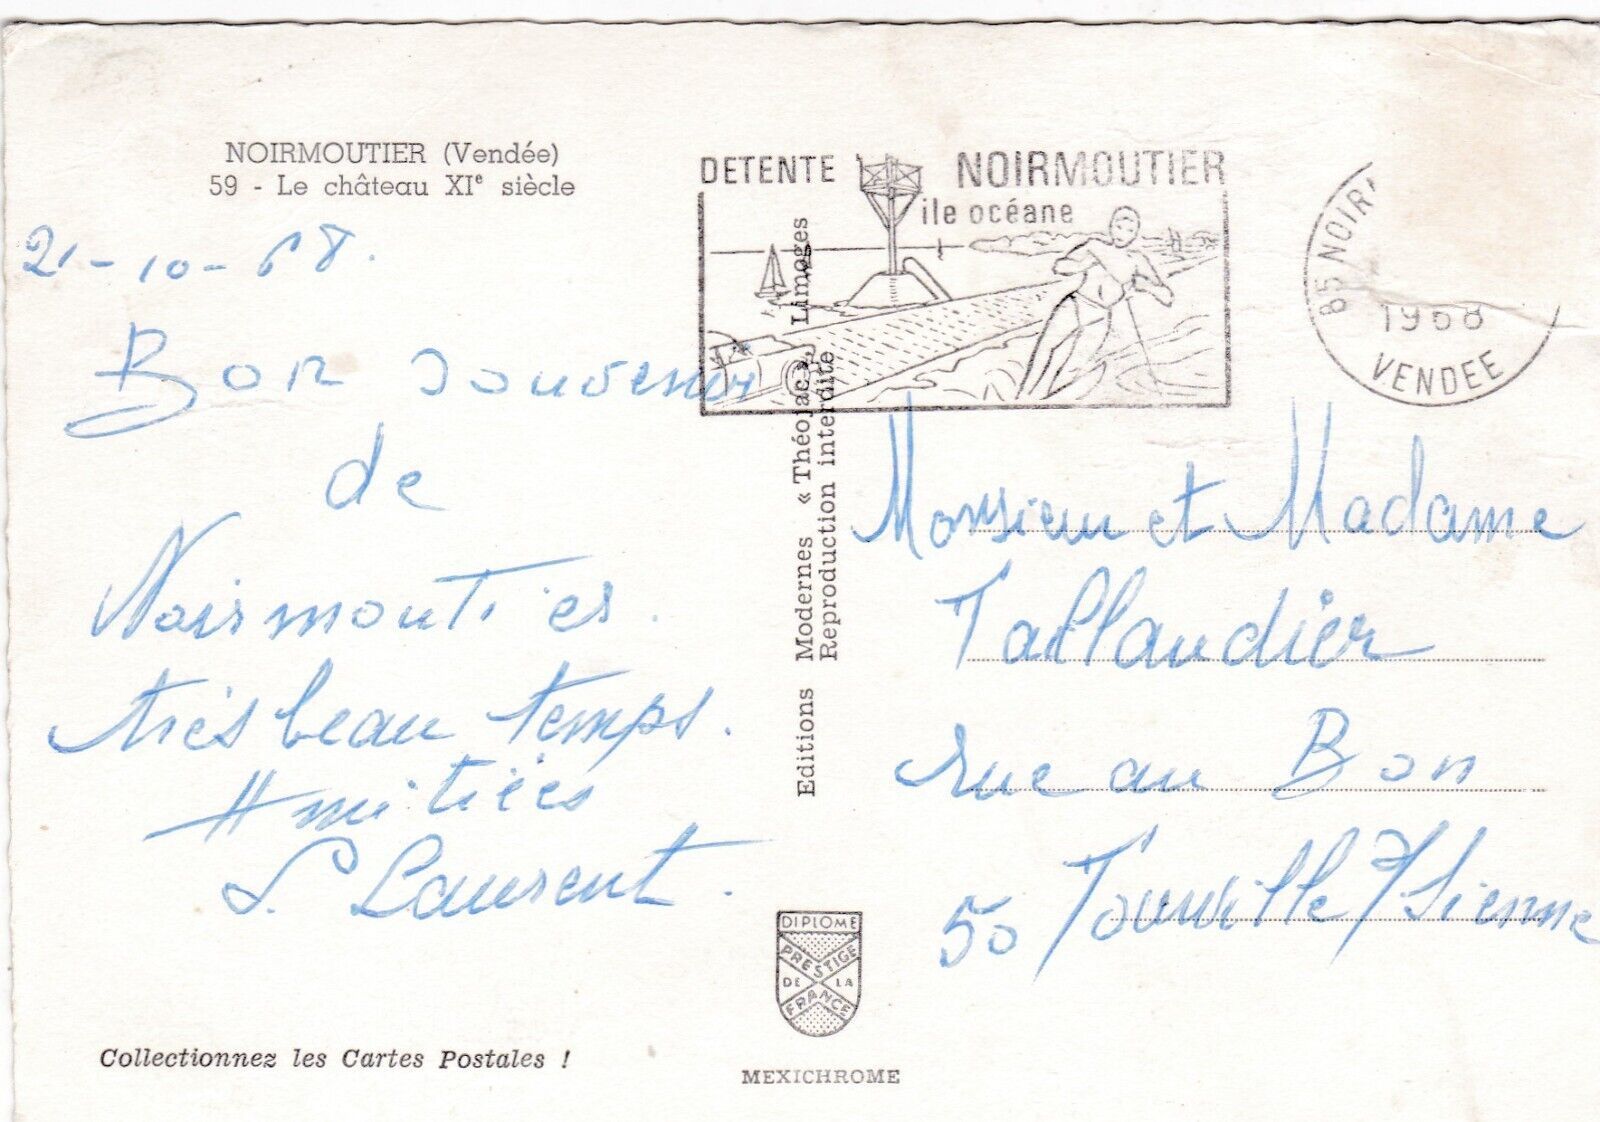 NOIRMOUTIER (Vendée)
59 - Le château XIe siècle
21-10-68.
Bon souvenir
de
Noirmoutier.
très beau temps.
Amitiés
S. Laurent.
DETENTE NOIRMOUTIER
île océane
85 NOIR
1968
VENDEE
Editions Modernes « Théojac », Limoges
Reproduction interdite
Monsieur et Madame
Tallaudier
rue au Bon
50 Tourville/Sienne
DIPLOME
PRESTIGE
DE LA
FRANCE
Collectionnez les Cartes Postales !
MEXICHROME